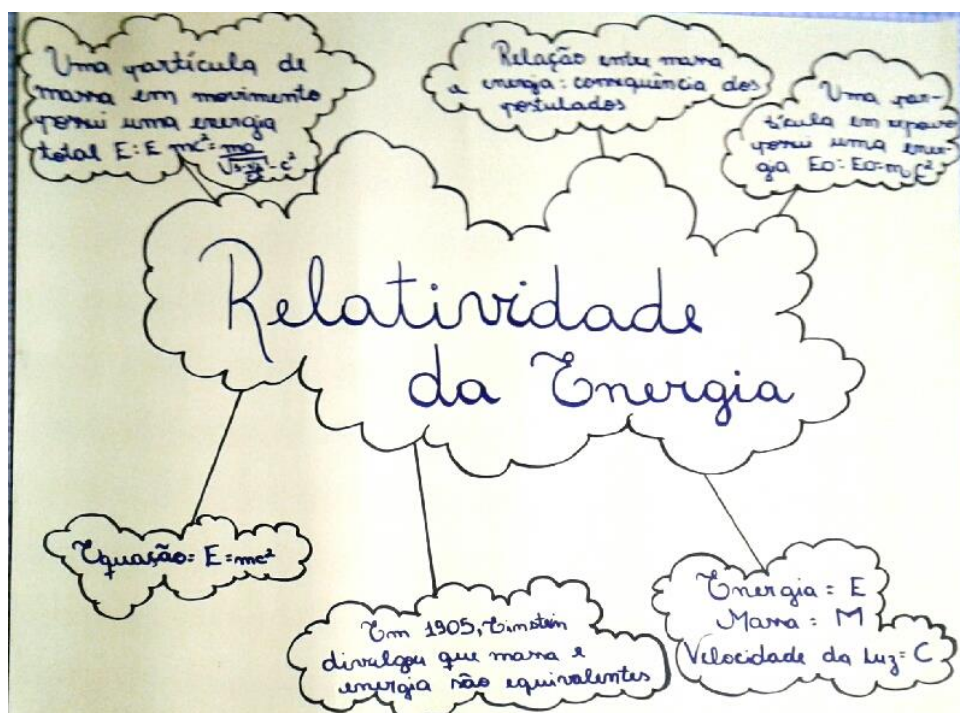 Uma partícula de
massa em movimento
possui uma energia
total E: E mc² = mo
√1-v²/c² · c²
Relação entre massa
e energia: consequência dos
postulados
Uma par-
tícula em repouso
possui uma ener-
gia Eo: Eo=m c²
Relatividade
da Energia
Equação= E=mc²
Em 1905, Einstein
divulgou que massa e
energia são equivalentes
Energia = E
Massa = M
Velocidade da Luz = C